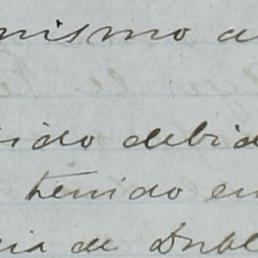 nismo a
ido debid
tenido en
cia de Dubl